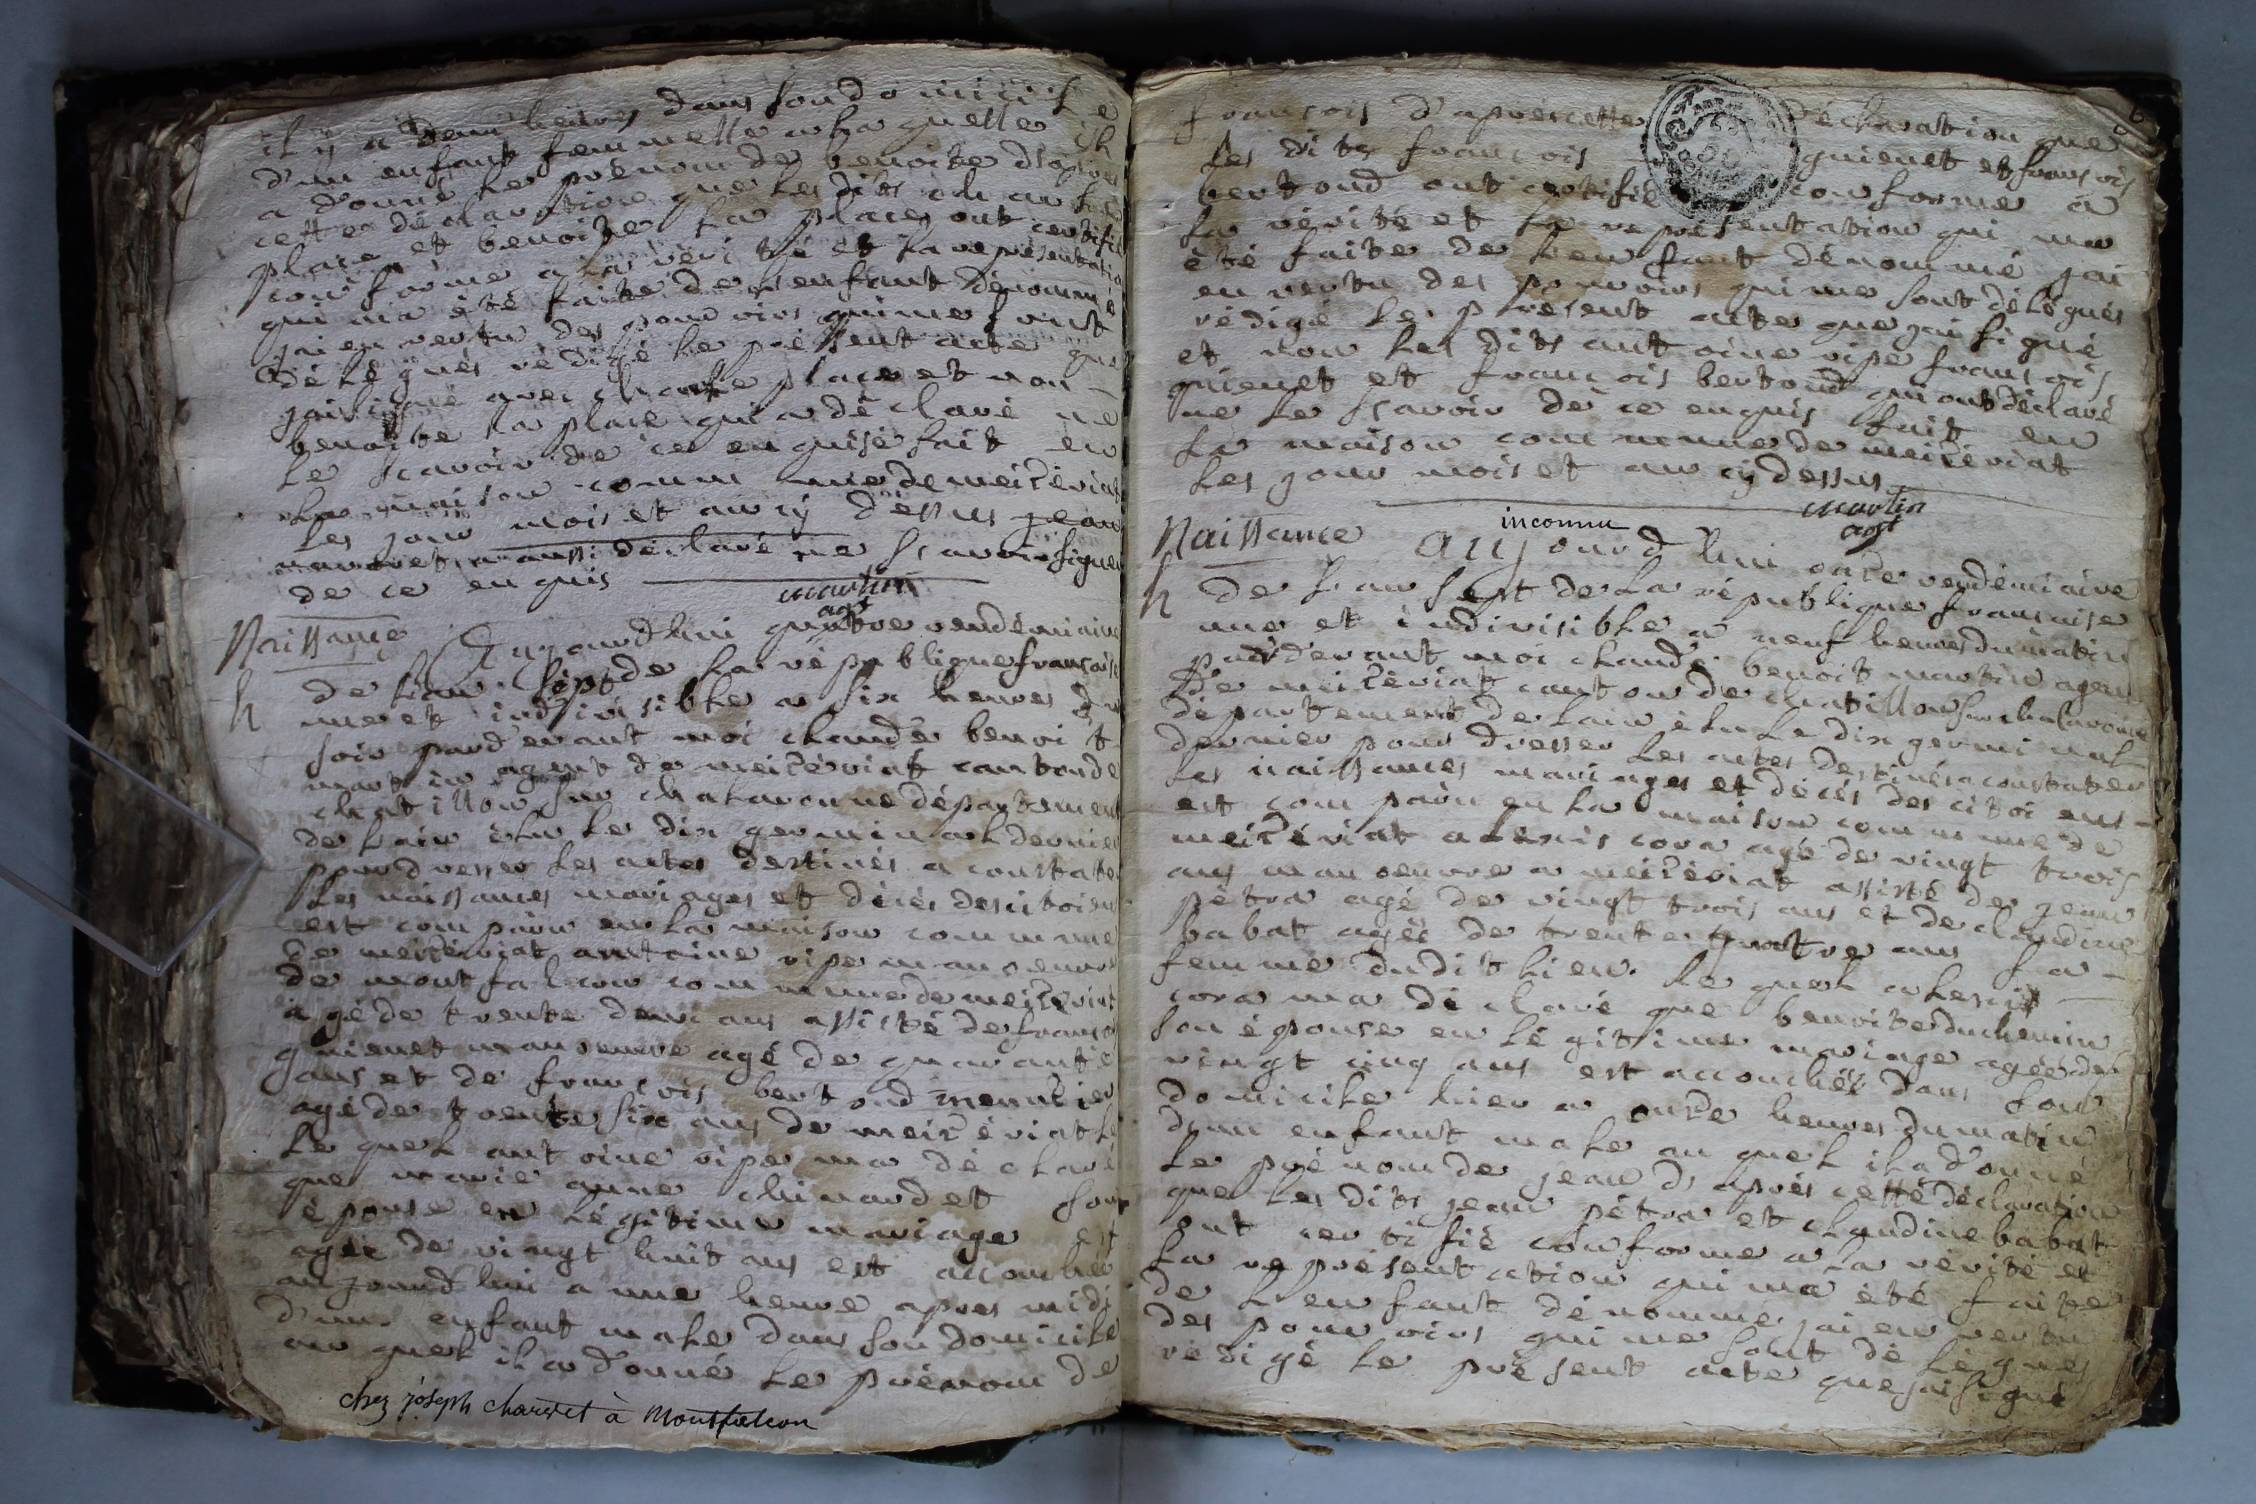 il y a deux heures dans son domicile
d'un enfant femmelle a la quelle il
a donné le prénom de benoite d'après
cette déclaration que les dits
place et benoite la place ont certifié
conforme a la vérité et la représentation
qui ma été faite de lenfant dénommé
jai en vertu des pouvoirs qui me sont
délégués rédigé le présent acte que
jai signé avec place et non
benoite la place qui a déclaré ne
le scavoir de ce enquise fait en
la maison commune de meizériat
les jour mois et an cy dessus jean
a aussi déclaré ne scavoir signer
de ce enquis
martin
agt
Naissance Aujourdhui quatre vendémiaire
h de lan sept de la république francaise
une et indivisible a six heures du
soir pard'evant moi claude benoit
martin agent de meizériat canton de
chatillon sur chalaronne département
de lain élu le dix germinal dernier
pour dresser les actes destinés a constater
les naissances mariages et décés des citoiens
est comparu en la maison commune
de meizériat antoine ripe manoeuvre
de montfalcon commune de meizériat
agé de trente deux ans assisté de francois
guienet manoeuvre agé de quarante
ans et de francois bertoud menuzier
agé de trente six ans de meizériat le
le quel antoine ripe ma déclaré
que marie anne chinardet son
épouse en légitime mariage est
agée de vingt huit ans est accouchée
aujourd'hui a une heure apres midi
d'un enfant male dans son domicile
au quel il a d'onné le prénom de
chez joseph charvet à Montfalcon
francois d'aprés cette déclaration que
les dits francois guienet et francois
bertoud ont certifié conforme a
la vérité et la représentation qui ma
été faite de lenfant dénommé jai
en vertu des pouvoirs qui me sont délégués
rédigé le présent acte que jai signé
et non les dits antoine ripe francois
guienet et francois bertoud qui ont déclaré
ne le scavoir de ce enquis fait en
la maison commune de meizériat
les jour mois et an cy dessus
martin
agt
inconnu
Naissance Aujourd'hui onze vendémiaire
h de lan sept de la république francaise
une et indivisible a neuf heures du matin
pard'evant moi claude benoit martin agent
de meizériat canton de chatillon sur chalaronne
département de lain élu le dix germinal
dernier pour dresser les actes destinés a constater
les naissances mariages et décés des citoiens
est comparu en la maison commune de
meizériat alexis cora agé de vingt trois
ans manoeuvre a meizériat assisté de jean
pétra agé de vingt trois ans et de claudine
babat agée de trente quatre ans fa
femme dudit lieu. le quel alexis
cora ma déclaré que benoite duchemin
son épouse en légitime mariage agée de
vingt cinq ans est accouchée dans son
domicile hier a onze heures du matin
d'un enfant male au quel il a d'onné
le prénom de jean d'aprés cette déclaration
que les dits jean pétra et claudine babat
ont certifié conforme a la vérité et
la représentation qui ma été faite
de lenfant dénommé jai en vertu
des pouvoirs qui me sont délégués
rédigé le présent acte que jai signé